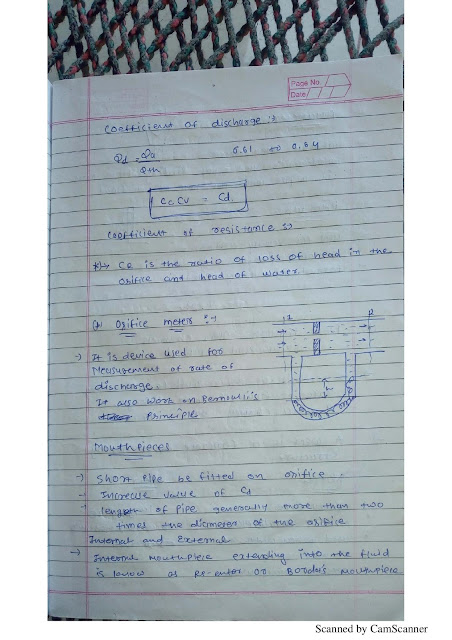 Page No.
Date
Coefficient of discharge :-
Qd = Qa / Qth 0.61 to 0.64
Cc Cv = Cd
Coefficient of resistance :-
Ce is the ratio of loss of head in the
orifice and head of water
Orifice meters :-
1 2
→ It is device used for
Measurement of rate of
discharge.
It also work on Bernoulli's
Principle
h
Mouthpieces
→ Short Pipe be fitted on orifice.
- Increase value of Cd
- length of Pipe generally more than two
times the diameter of the orifice
Internal and External
→ Internal mouthpiece extending into the fluid
is know as Re-enter or Borda's mouthpiece
Scanned by CamScanner